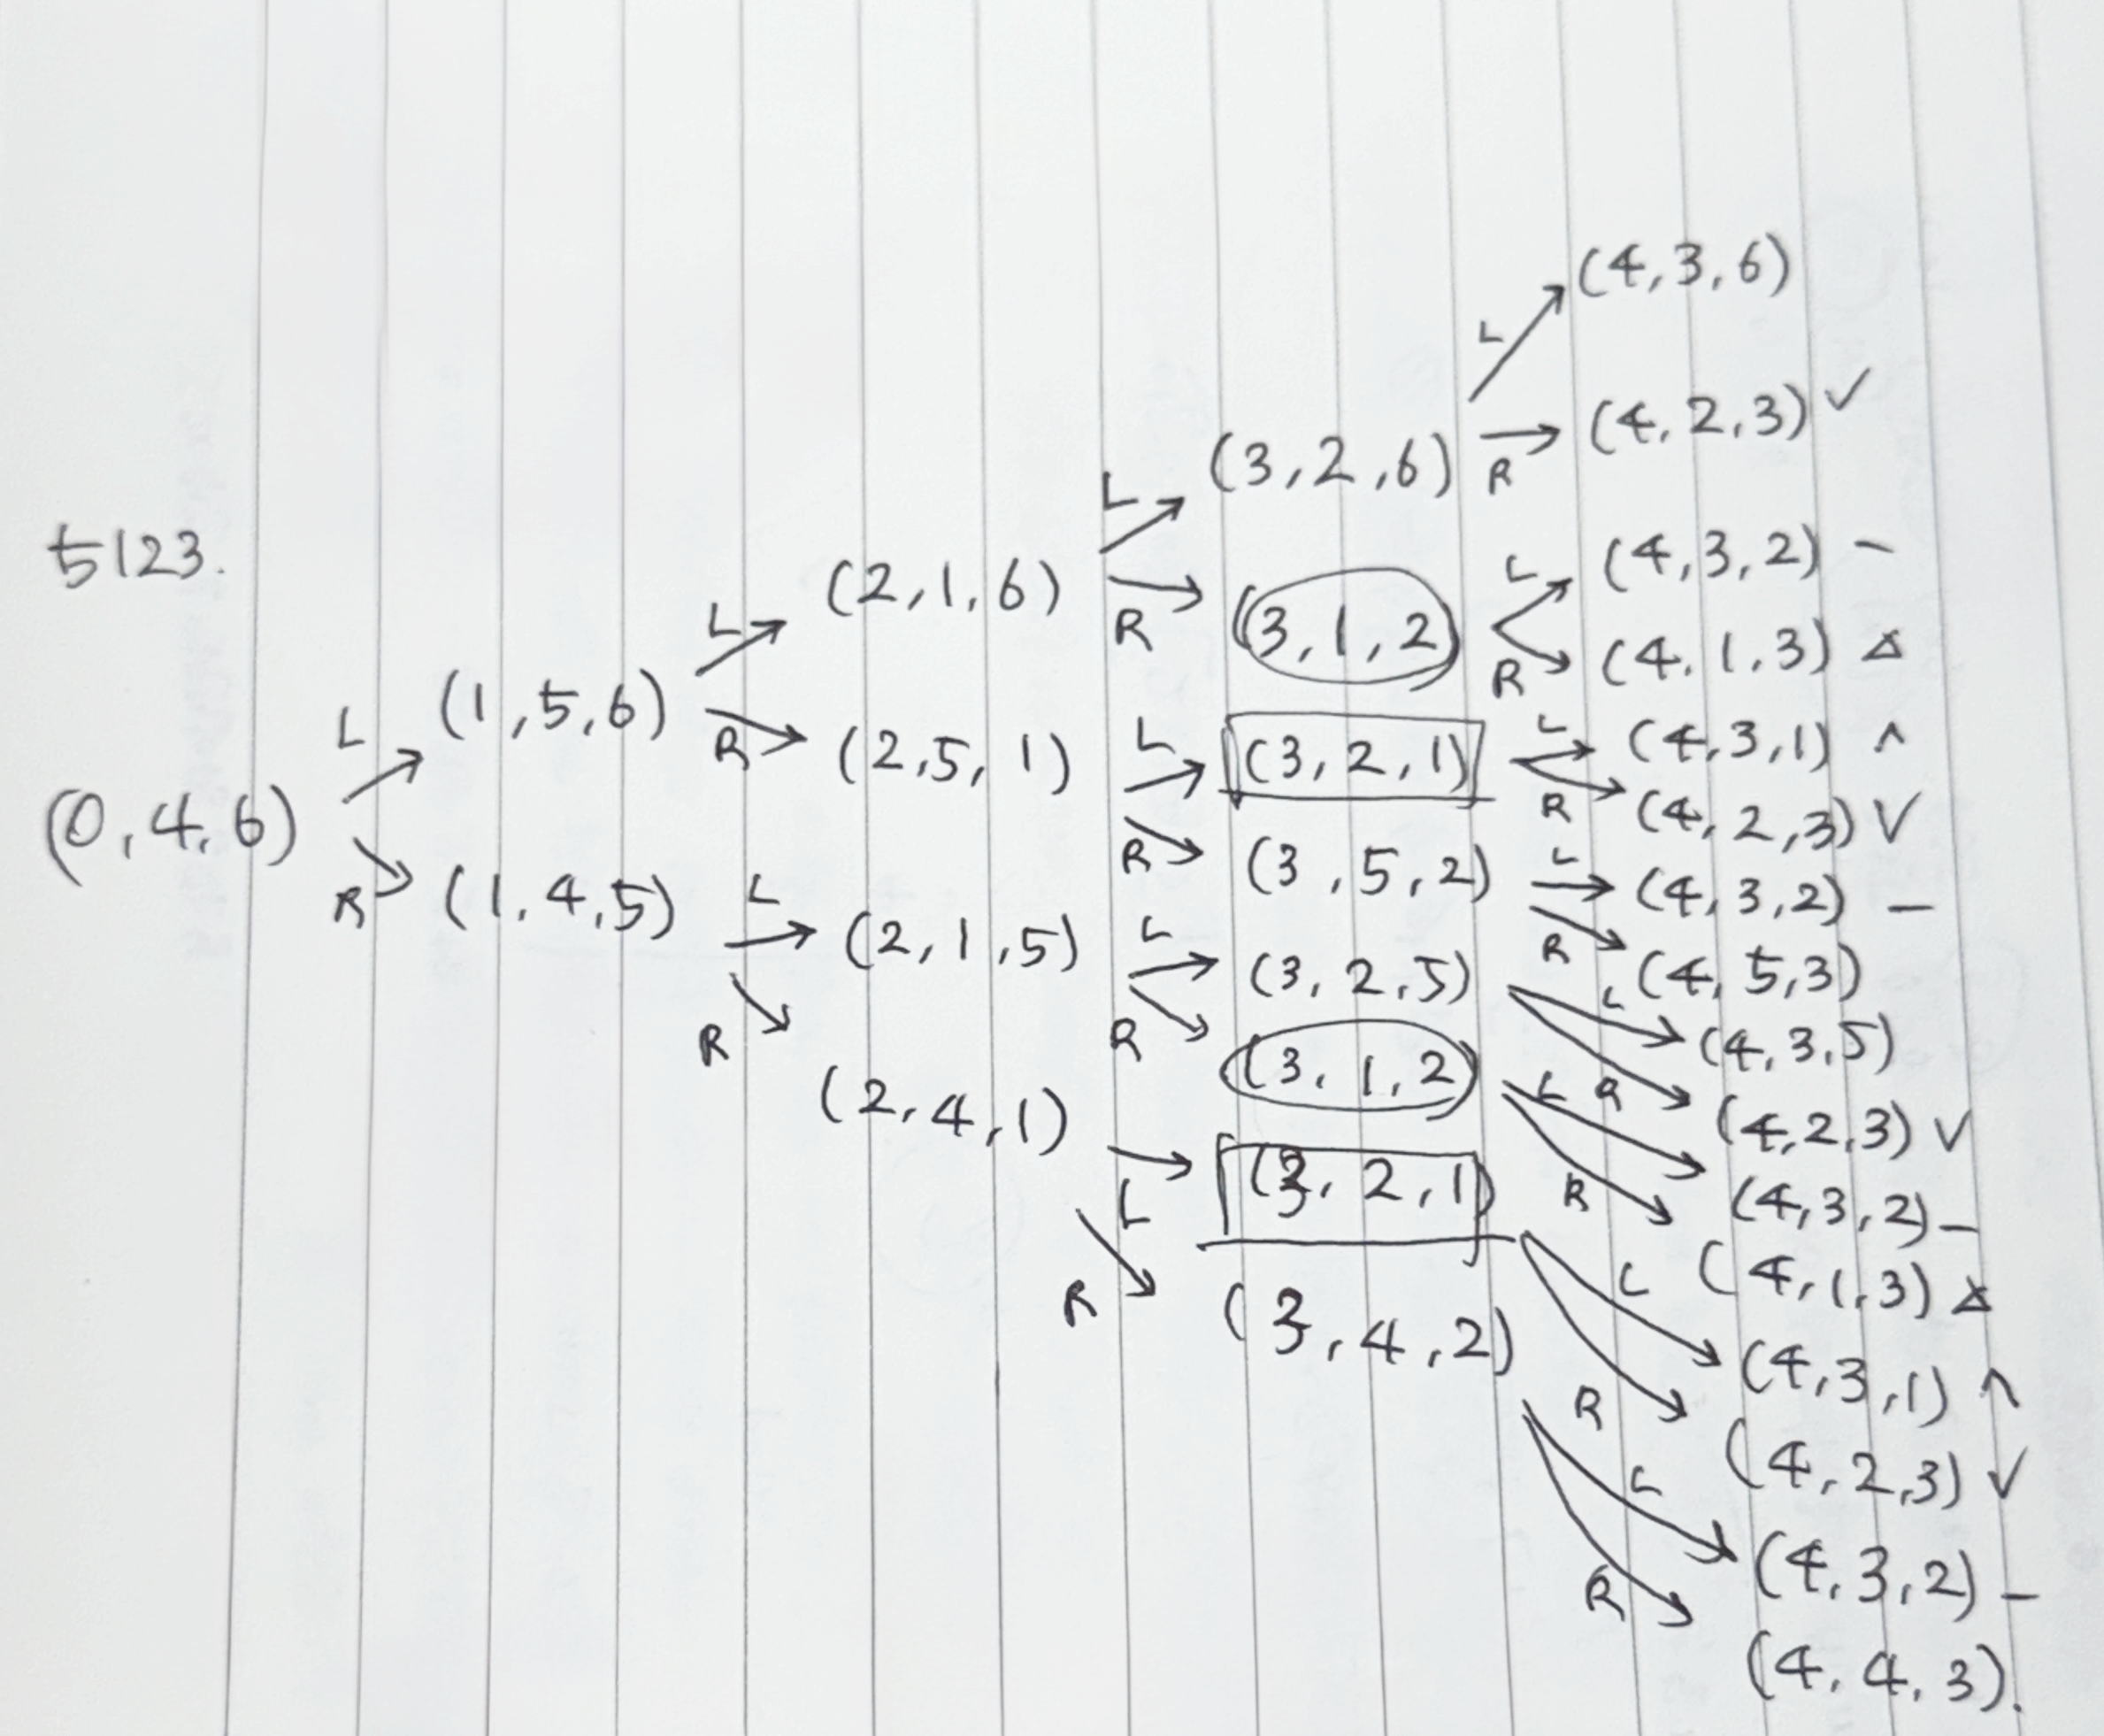 5123.
(0,4,6)
L
R
(1,5,6)
(1,4,5)
L
R
L
R
(2,1,6)
(2,5,1)
(2,1,5)
(2,4,1)
L
R
L
R
L
R
L
R
(3,2,6)
(3,1,2)
(3,2,1)
(3,5,2)
(3,2,5)
(3,1,2)
(3,2,1)
(3,4,2)
L
R
L
R
L
R
L
R
L
R
L
R
L
R
L
R
(4,3,6)
(4,2,3) ✓
(4,3,2) -
(4,1,3) △
(4,3,1) ^
(4,2,3) V
(4,3,2) -
(4,5,3)
(4,3,5)
(4,2,3) V
(4,3,2) -
(4,1,3) △
(4,3,1) ^
(4,2,3) V
(4,3,2) -
(4,4,3).